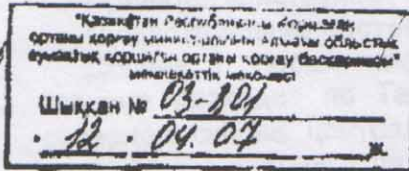 "Қазақстан Республикасы Қоршаған
ортаны қорғау министрлігінің Алматы облыстық
аумақтық қоршаған ортаны қорғау басқармасы"
мемлекеттік мекемесі
Шыққан № 03-801
12. 04. 07 ж.